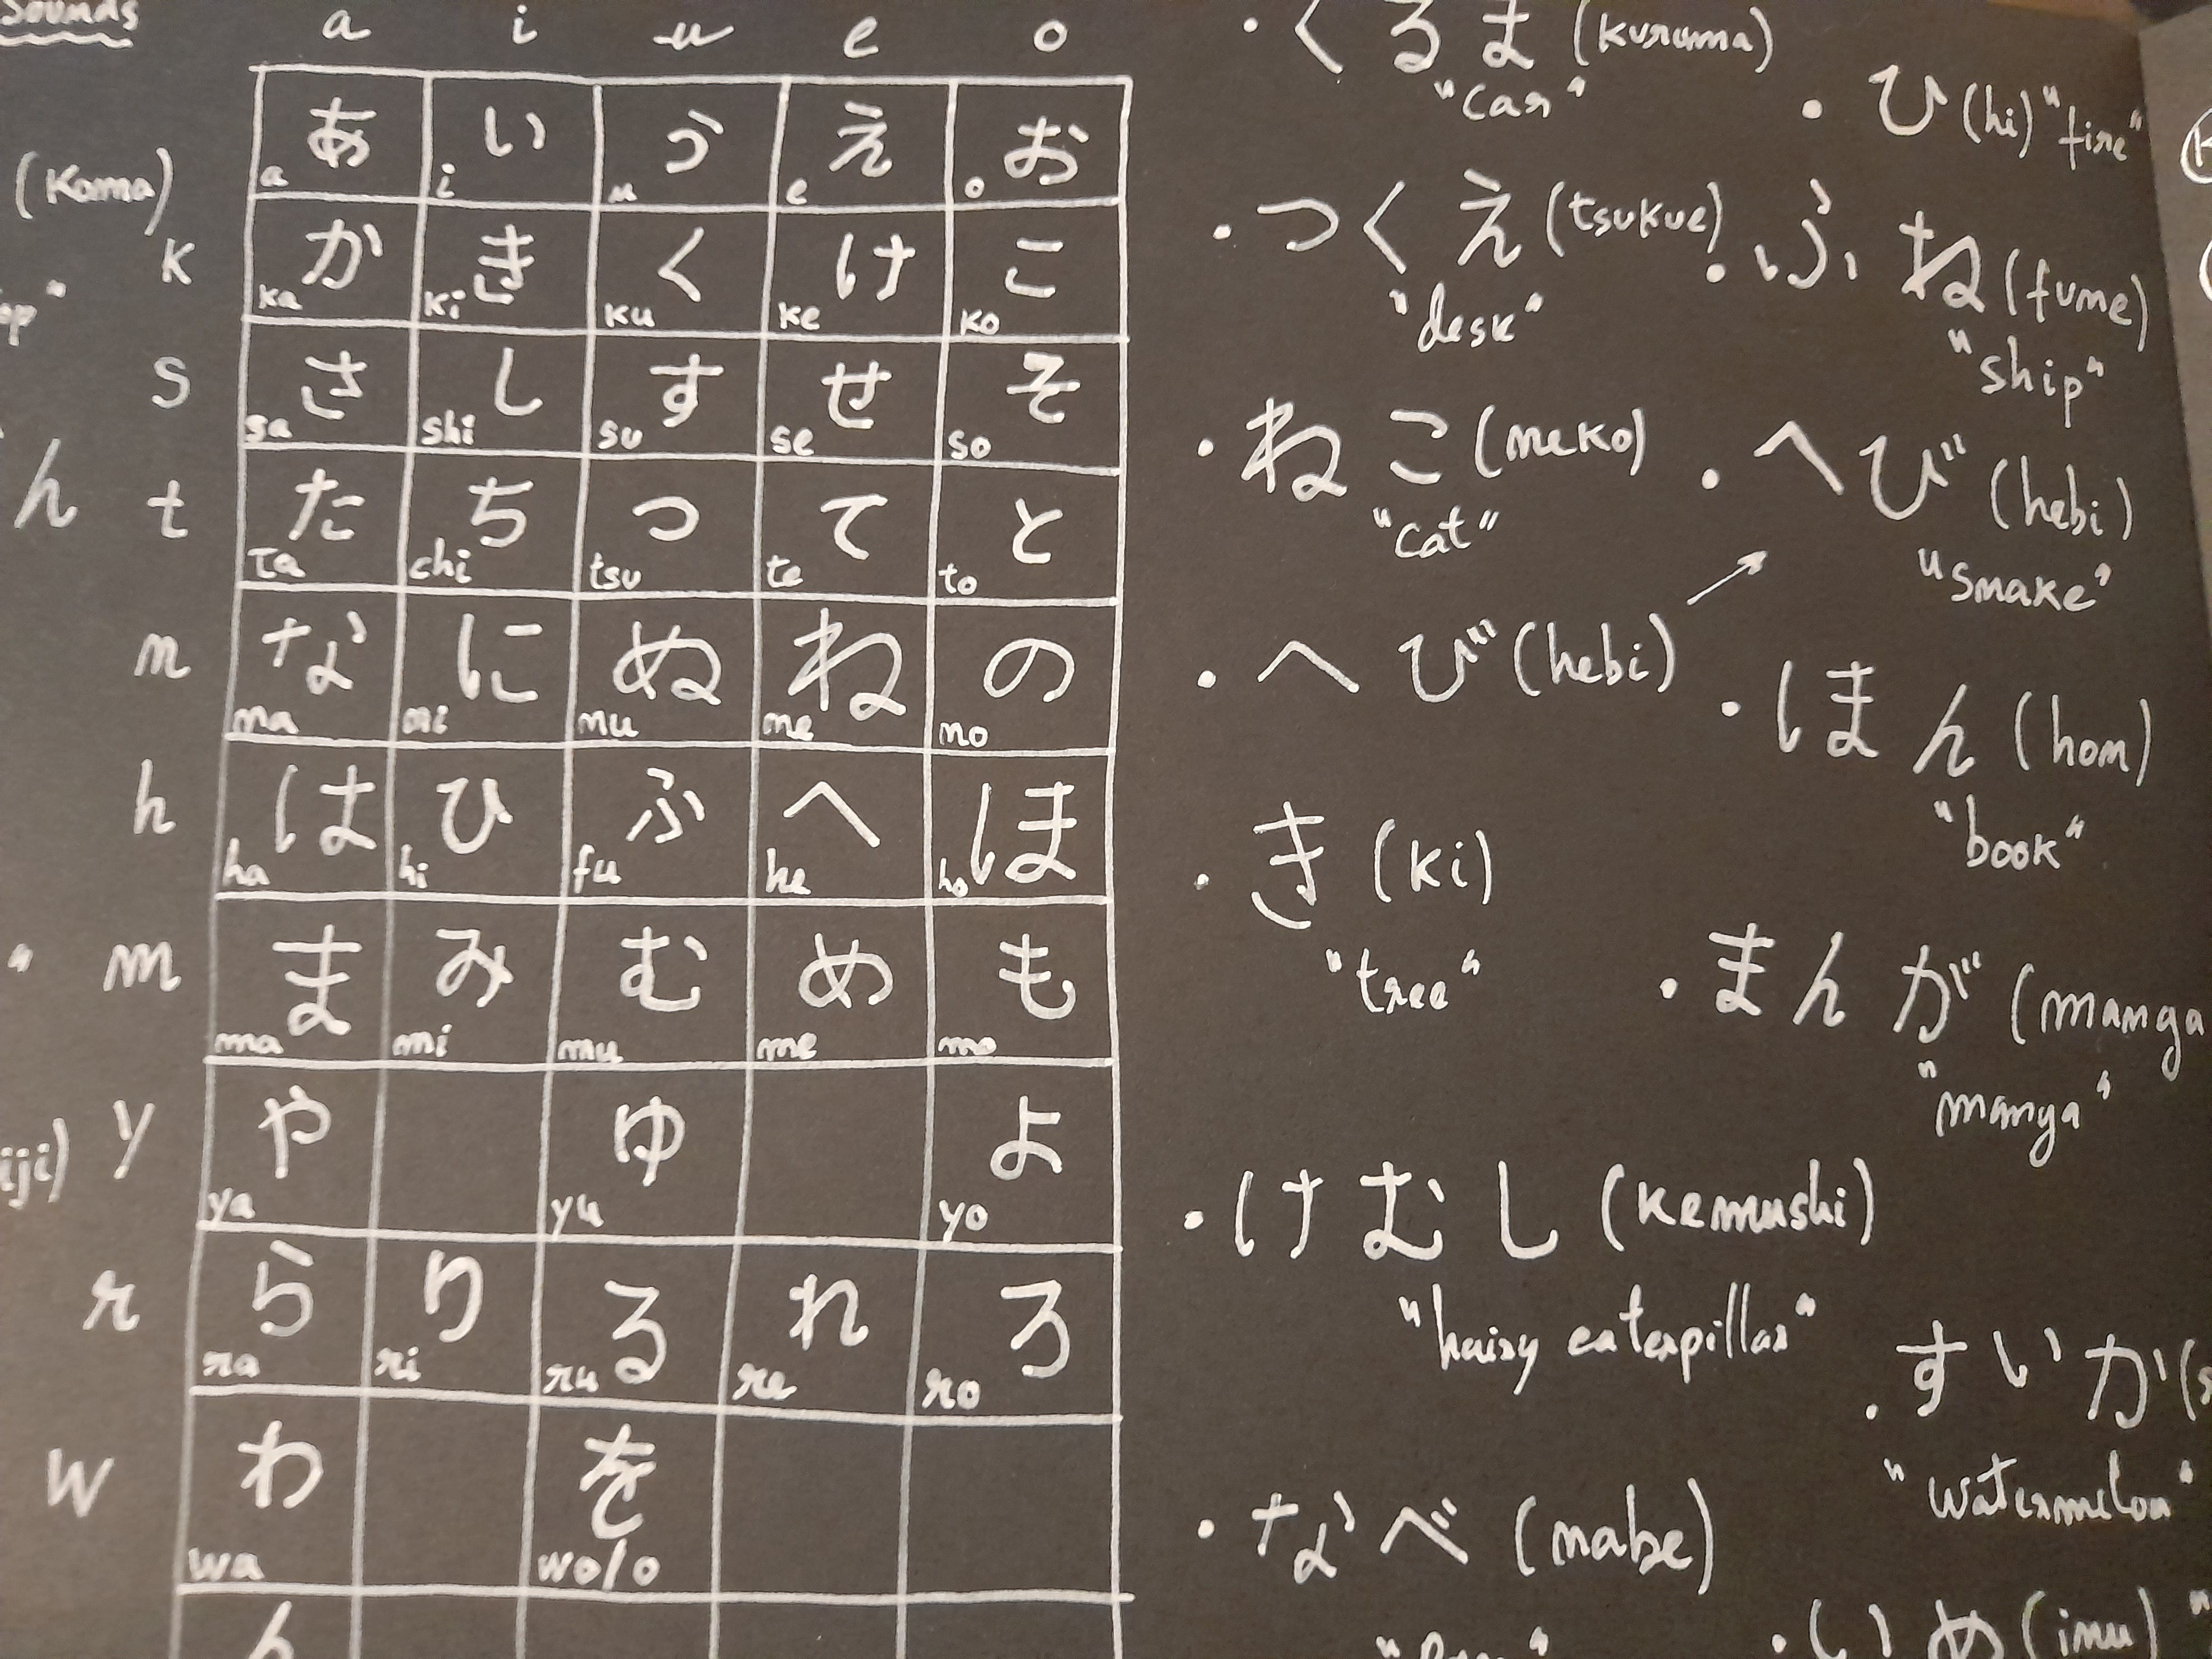 Sounds
a i u e o
(Koma)
op"
ん
"
iji)
あ a い i う u え e お o
k か ka き ki く ku け ke こ ko
s さ sa し shi す su せ se そ so
t た ta ち chi つ tsu て te と to
n な na に ni ぬ nu ね ne の no
h は ha ひ hi ふ fu へ he ほ ho
m ま ma み mi む mu め me も mo
y や ya ゆ yu よ yo
r ら ra り ri る ru れ re ろ ro
w わ wa を wo/o
ん
・くるま (kuruma)
"car"
・つくえ (tsukue)
"desk"
・ねこ (neko)
"cat"
・へび (hebi)
・き (ki)
"tree"
・けむし (kemushi)
"hairy caterpillar"
・なべ (nabe)
・ひ (hi) "fire"
・ふね (fune)
"ship"
・へび (hebi)
"snake"
・ほん (hon)
"book"
・まんが (manga
"manga"
・すいか (s
"watermelon"
・いぬ (inu) "